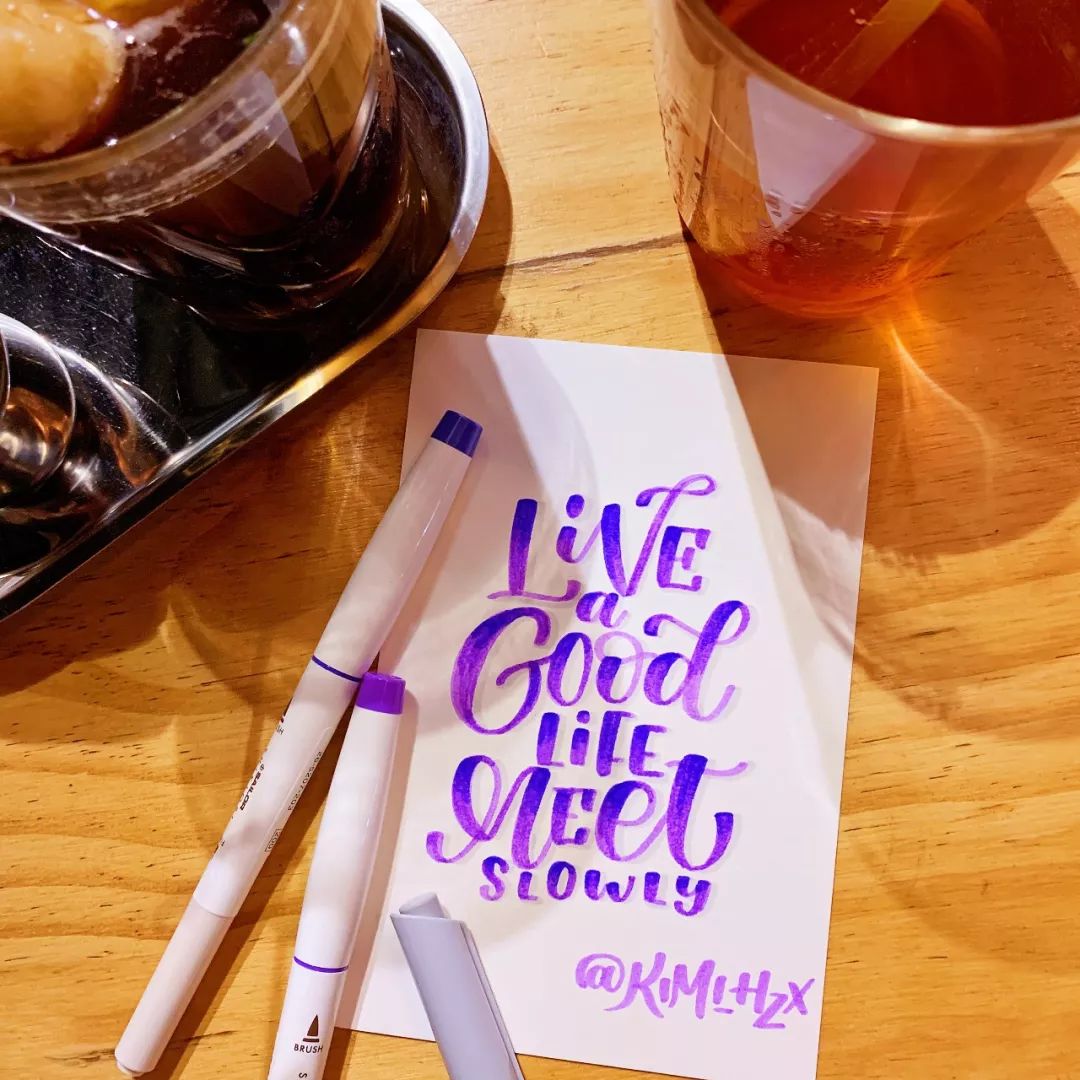 LiVE
a
Good
LiFE
MEET
SLOWLY
@KiMLHZX
SAILOR
BRUSH